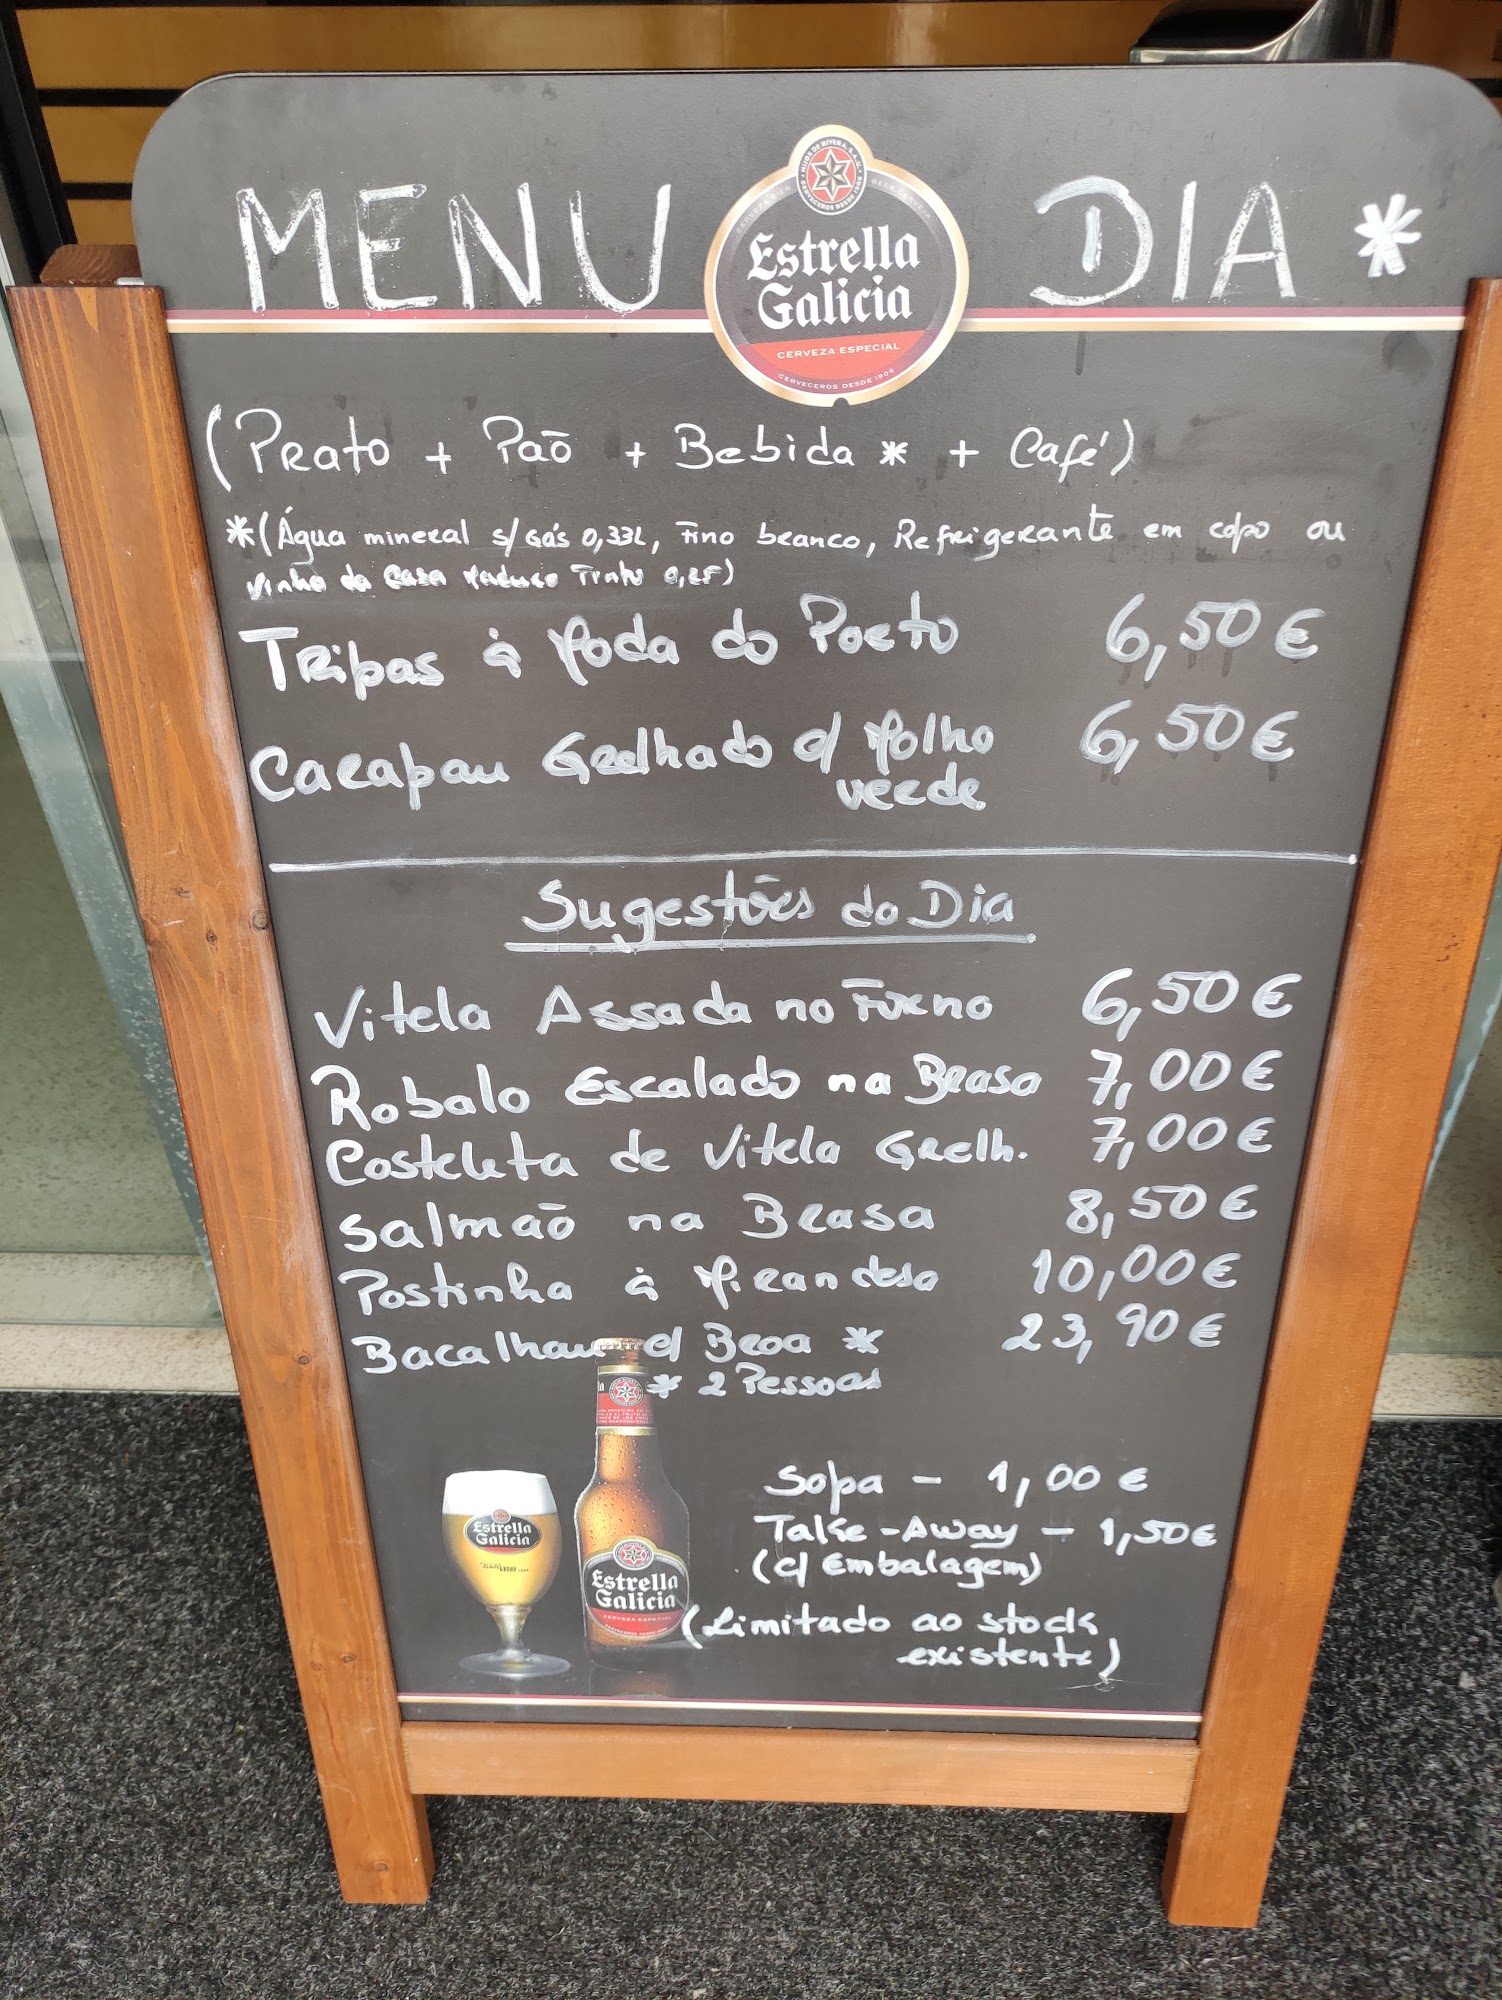 MENU DIA *
HIJOS DE RIVERA, S.A.U.
CERVECEROS DESDE 1906
Estrella
Galicia
CERVEZA ESPECIAL
CERVECEROS DESDE 1906
(Prato + Paõ + Bebida * + Café)
*(Água mineral s/ Gás 0,33L, Fino branco, Refrigerante em copo ou
Vinho da Casa Maduro Tinto 0,25)
Tripas à Moda do Porto 6,50 €
Carapau Grelhado c/ Molho 6,50 €
verde
Sugestões do Dia
Vitela Assada no Forno 6,50 €
Robalo Escalado na Brasa 7,00 €
Costeleta de Vitela Grelh. 7,00 €
Salmaõ na Brasa 8,50 €
Postinha à Mirandesa 10,00 €
Bacalhau c/ Broa * 23,90 €
* 2 Pessoas
Sopa - 1,00 €
Take-Away - 1,50 €
(c/ Embalagem)
(Limitado ao stock
existente)
Estrella
Galicia
Estrella
Galicia
CERVEZA ESPECIAL